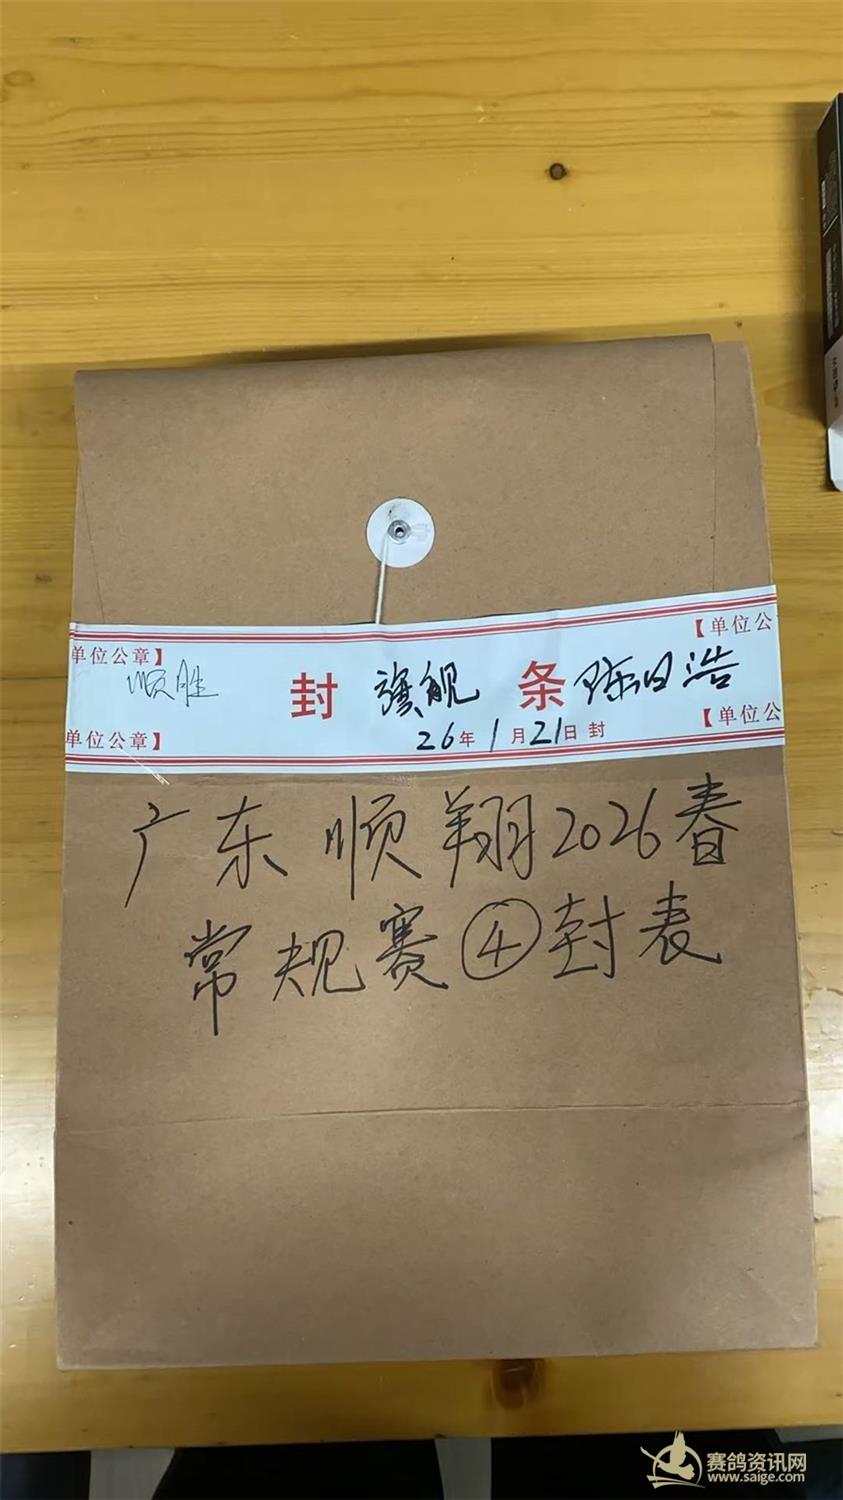 单位公章】
【单位公
顺胜
封 旗舰 条 陈日浩
单位公章】
【单位公
26年1月21日 封
广东顺翔2026春
常规赛④封表
赛鸽资讯网
www.saige.com